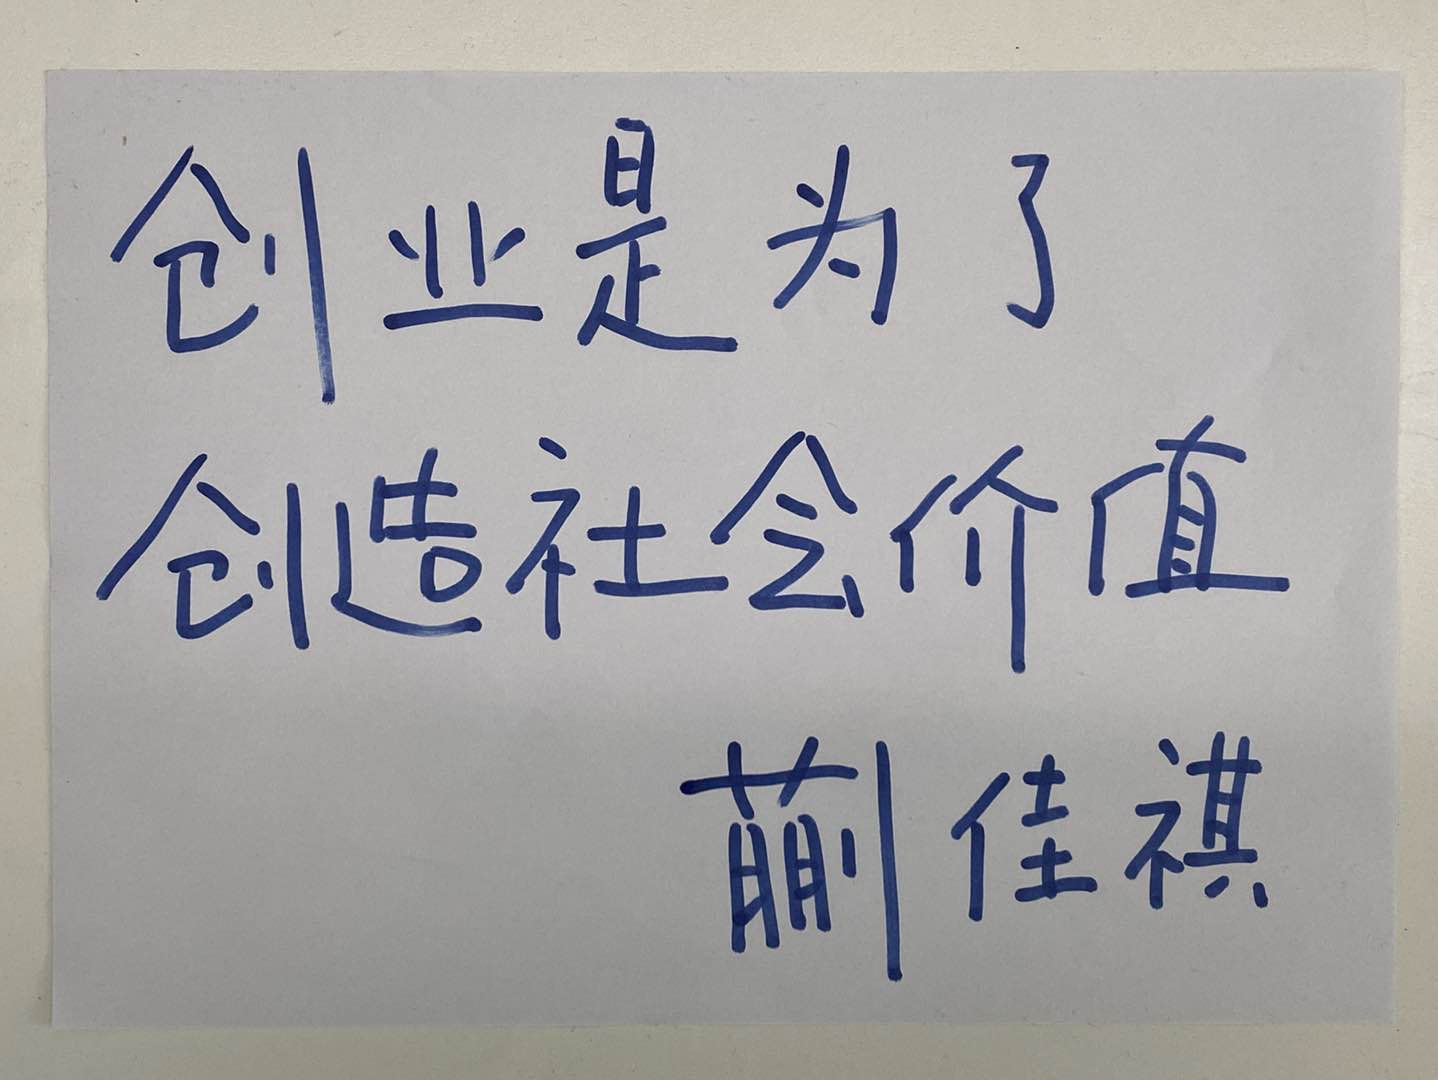 创业是为了
创造社会价值
蒯佳祺